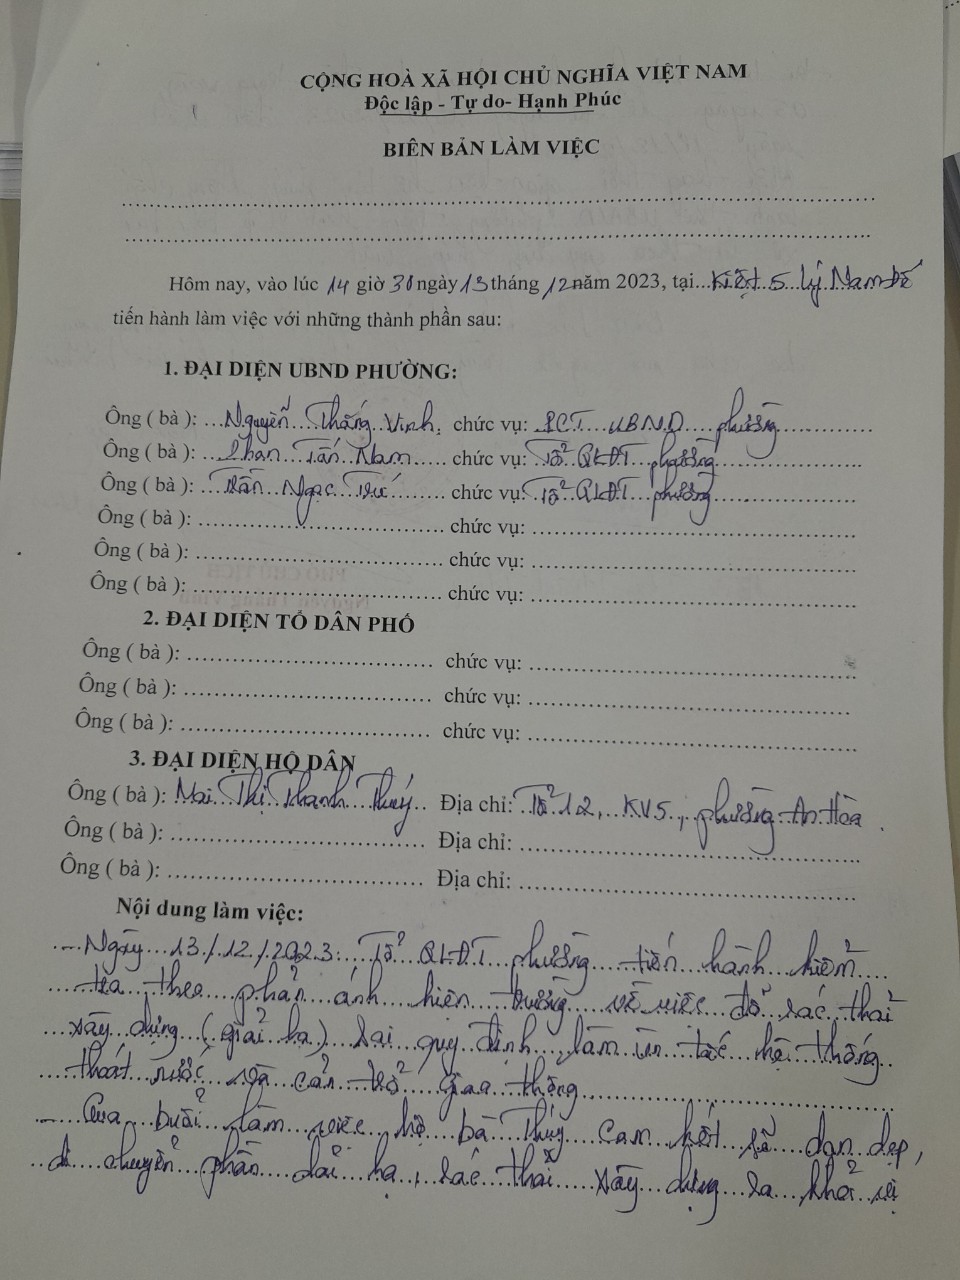 CỘNG HOÀ XÃ HỘI CHỦ NGHĨA VIỆT NAM
Độc lập - Tự do- Hạnh Phúc
BIÊN BẢN LÀM VIỆC
Hôm nay, vào lúc 14 giờ 30 ngày 13 tháng 12 năm 2023, tại Kiệt 5 Lý Nam Đế
tiến hành làm việc với những thành phần sau:
1. ĐẠI DIỆN UBND PHƯỜNG:
Ông ( bà ): Nguyễn Thắng Vinh. chức vụ: PCT UBND phường
Ông ( bà ): Phan Tấn Nam chức vụ: Tổ QLĐT phường
Ông ( bà ): Trần Ngọc chức vụ: Tổ QLĐT phường
Ông ( bà ): chức vụ:
Ông ( bà ): chức vụ:
Ông ( bà ): chức vụ:
2. ĐẠI DIỆN TỔ DÂN PHỐ
Ông ( bà ): chức vụ:
Ông ( bà ): chức vụ:
Ông ( bà ): chức vụ:
3. ĐẠI DIỆN HỘ DÂN
Ông ( bà ): Mai Thị Thanh Thuý Địa chỉ: Tổ 12, KV5, phường An Hòa.
Ông ( bà ): Địa chỉ:
Ông ( bà ): Địa chỉ:
Nội dung làm việc:
- Ngày 13/12/2023: Tổ QLĐT phường tiến hành kiểm
tra theo phản ánh hiện trường về việc đổ rác thải
xây dựng (giải hạ) sai quy định, làm ùn tắc hệ thống
thoát nước và cản trở giao thông
- Qua buổi làm việc hộ bà Thuý cam kết sẽ dọn dẹp,
di chuyển phần dải hạ, rác thải xây dựng ra khỏi vị